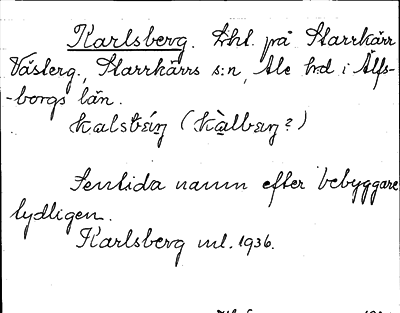 Karlsberg. Lht. på Starrkärr
Västerg., Starrkärrs s:n, Ale h:d i Älfs-
-borgs län.
Sentida namn efter bebyggare
tydligen.
Karlsberg ml. 1936.